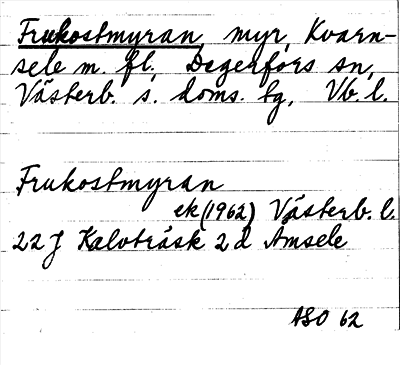 Frukostmyran, myr, Kvarn-
sele m. fl., Degerfors sn,
Västerb. s. doms. tg, Vb. l.
Frukostmyran
ek (1962) Västerb. l.
22 J Kalvträsk 2 d Amsele
ASO 62